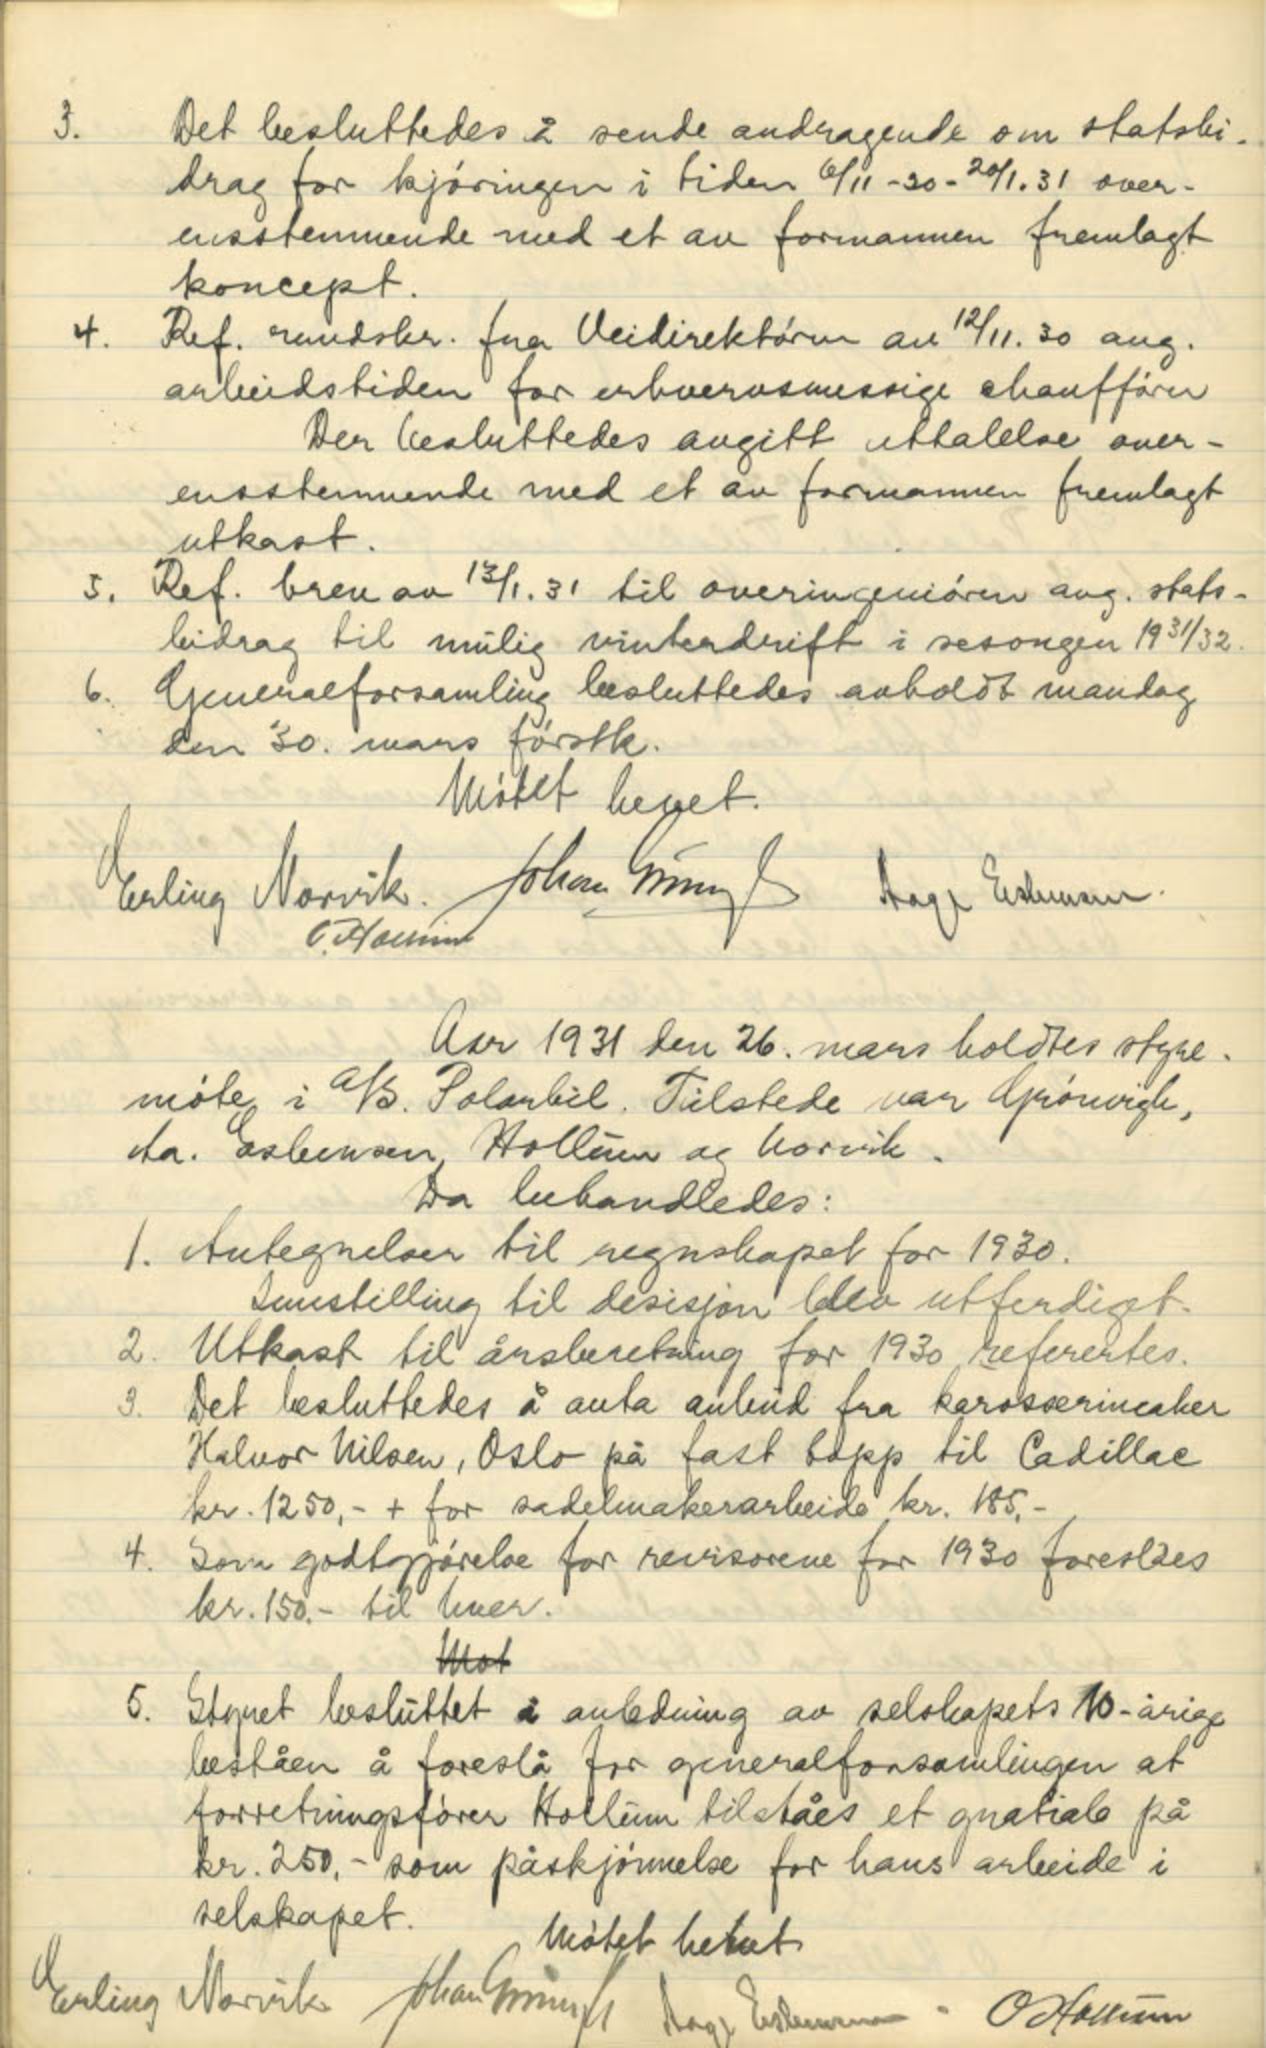 3. Det besluttedes å sende andragende om statsbi-
drag for kjøringen i tiden 6/11-30-20/1.31 over-
ensstemmende med et av formannen fremlagt
koncept.
4. Ref. rundskr. fra Veidirektøren av 12/11.30 ang.
arbeidstiden for erhvervsmessige chauffører
Der besluttedes avgitt uttalelse over-
ensstemmende med et av formannen fremlagt
utkast.
5. Ref. brev av 13/1.31 til overingeniøren ang. stats-
bidrag til mulig vinterdrift i sesongen 1931/32.
6. Generalforsamling besluttedes avholdt mandag
den 30. mars førstk.
Møtet hevet.
Erling Norvik. Johan Grønvigh Aage Esbensen.
O. Hollum
Aar 1931 den 26. mars holdtes styre-
møte i A/S. Polarbil. Tilstede var Grønvigh,
Aa. Esbensen, Hollum og Norvik.
Da behandledes:
1. Antegnelser til regnskapet for 1930.
Innstilling til desisjon blev utferdiget.
2. Utkast til årsberetning for 1930 refererfes.
3. Det besluttedes å anta anbud fra karosserimaker
Halvor Nilsen, Oslo på fast topp til Cadillac
kr. 1250,- + for sadelmakerarbeide kr. 185,-
4. Som godtgjørelse for revisorene for 1930 foreslåes
kr. 150.- til hver.
Møt
5. Styret besluttet i anledning av selskapets 10-årige
beståen å foreslå for generalforsamlingen at
forretningsfører Hollum tilståes et gratiale på
kr. 250,- som påskjønnelse for hans arbeide i
selskapet.
Møtet hevet
Erling Norvik Johan Grønvigh Aage Esbensen. O Hollum